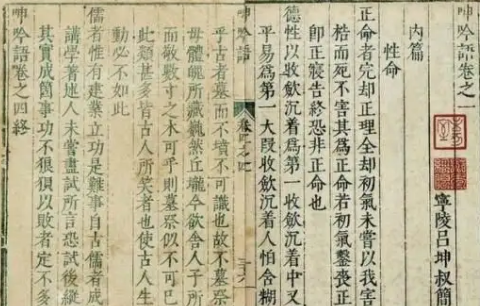 呻吟語卷之一
寧陵呂坤叔簡
內篇
性命
正命者完却正理全却初氣未嘗以我害
桎而死不害其為正命若初氣鑿喪正
即正寢告終恐非正命也
德性以收斂沉着為第一收斂沉着中又
平易為第一大段收斂沉着人怕含糊
呻吟語
卷之四
乎古者墓而不墳不可識也故不墓祭
母體魄所藏巍然丘壠今欲舍人子所
而敬數寸之木可乎則墓祭似不可已
此類甚多皆古人所笑者也使古人生
動必不如此
儒者惟有建業立功是難事自古儒者成
講學著述人未嘗盡試所言恐試後縱
其實成箇事功不狼狽以敗者定不多
呻吟語卷之四終